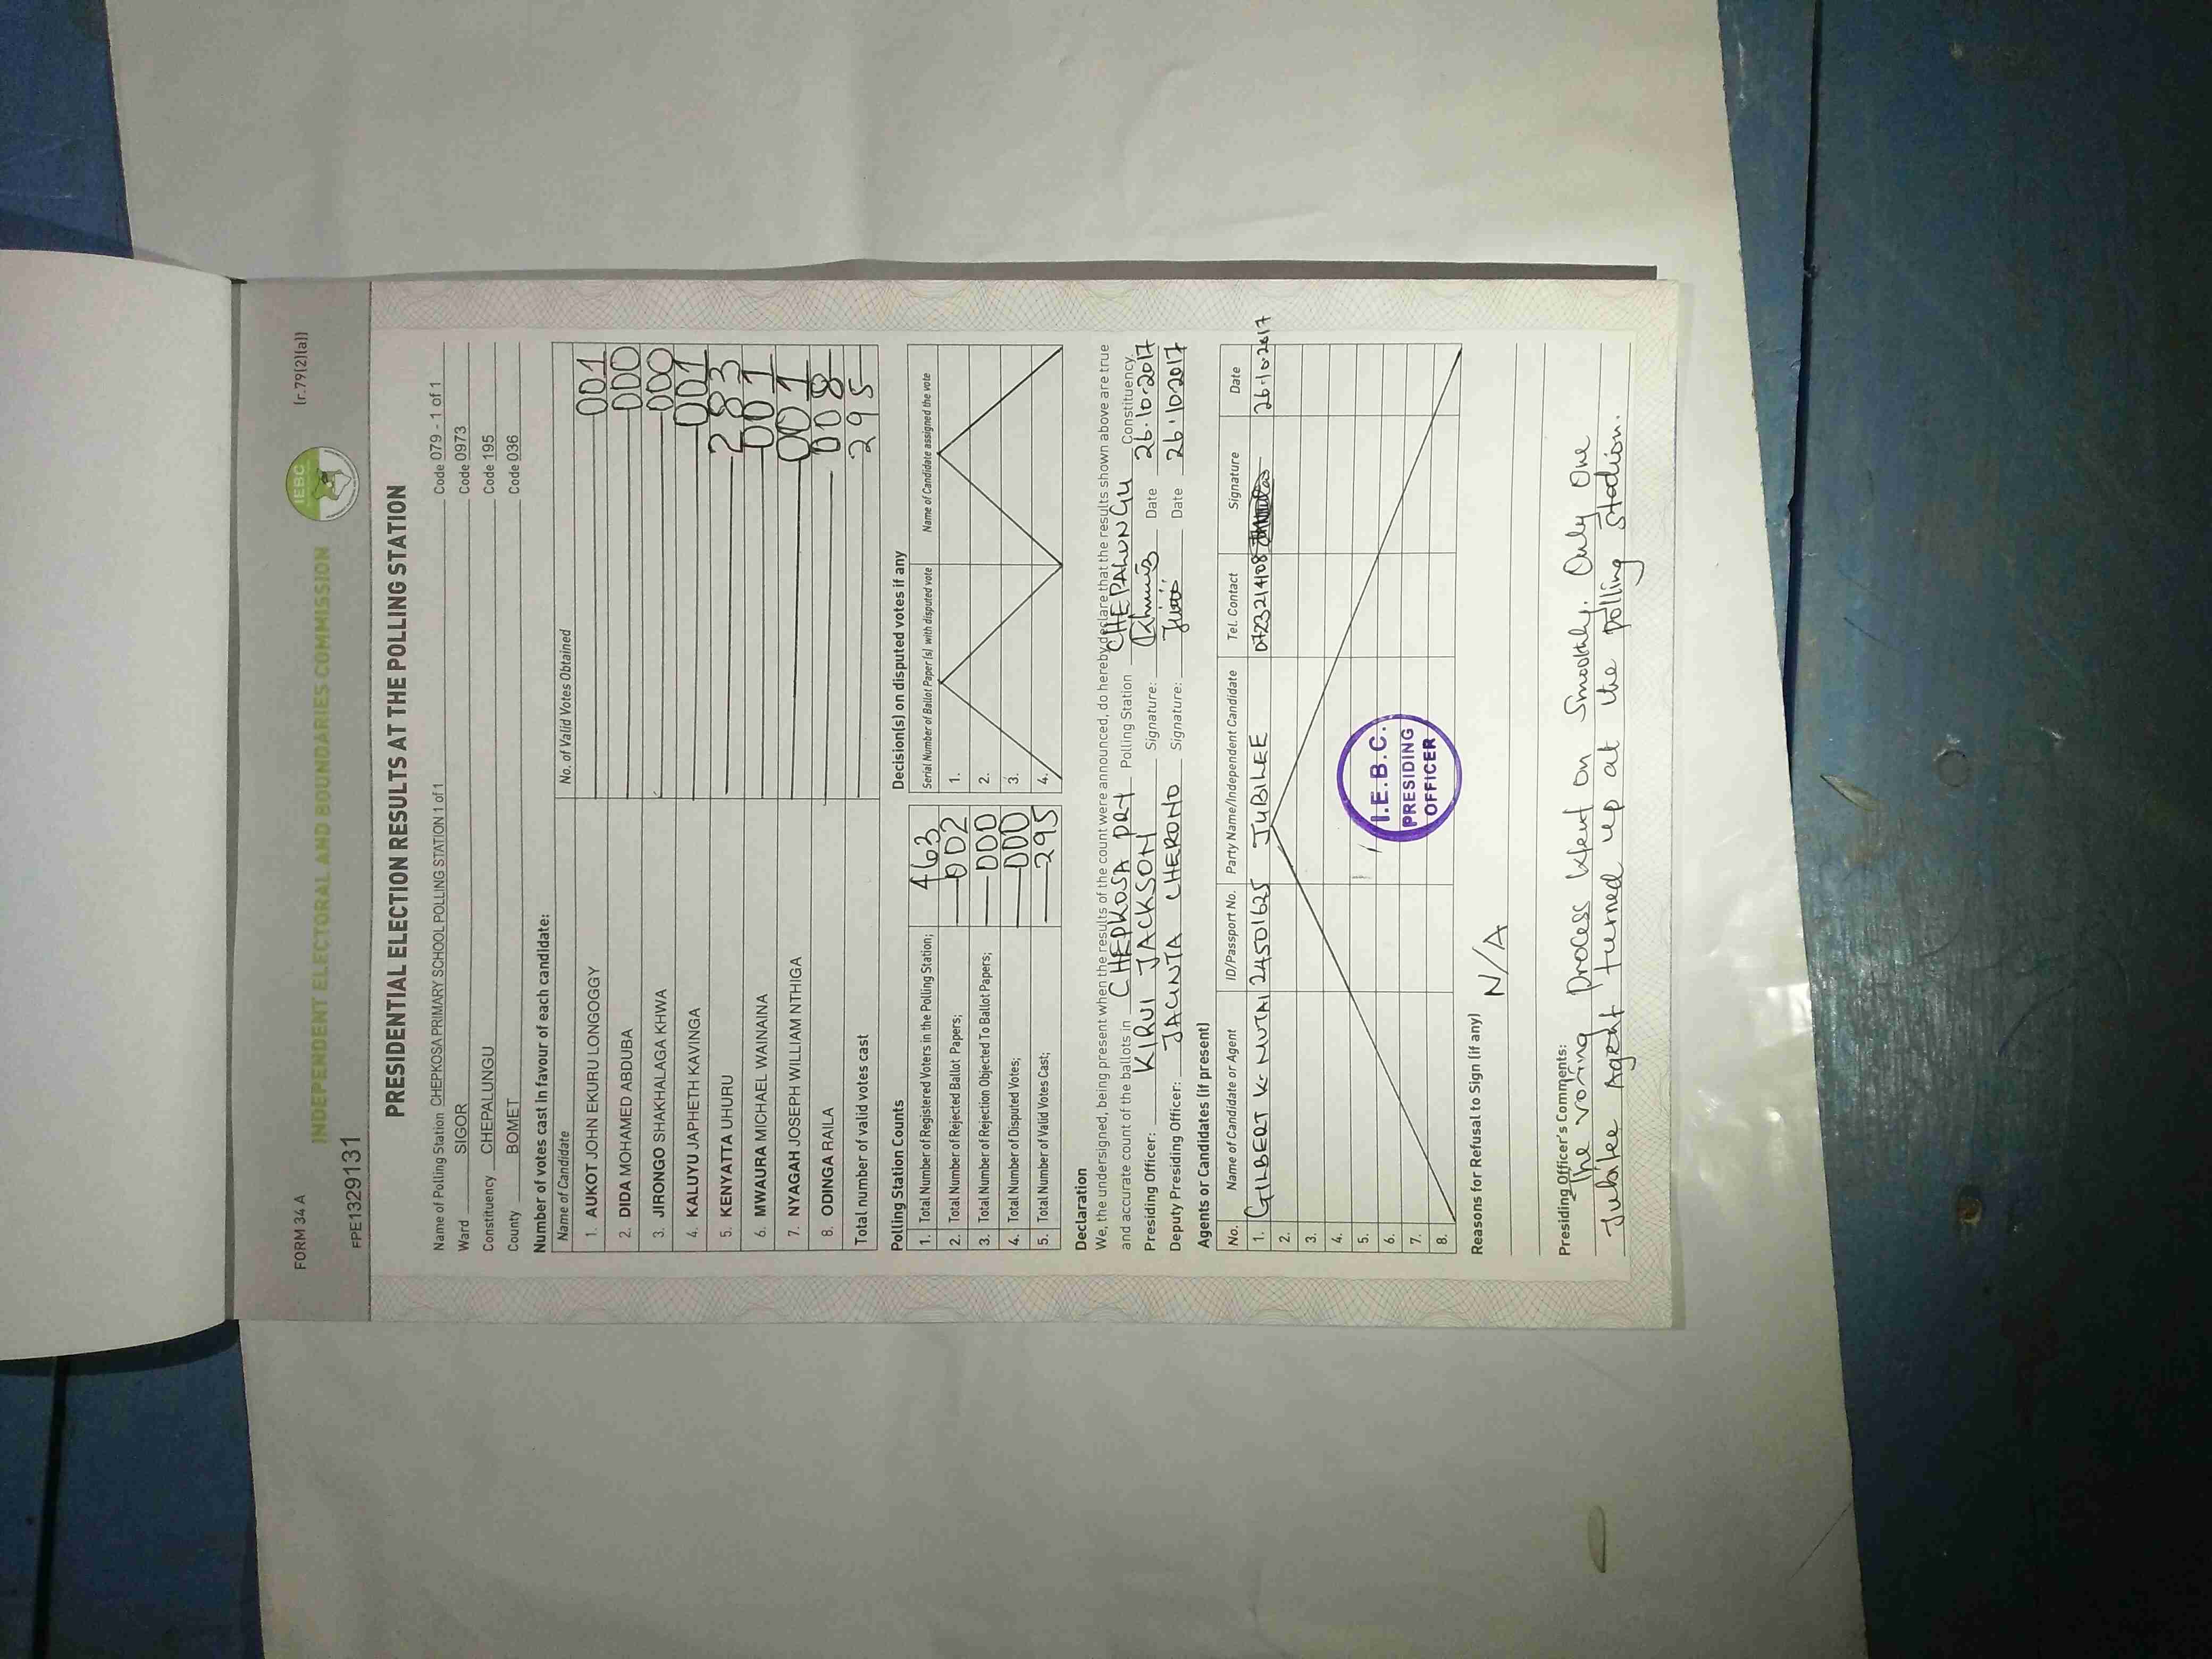 FORM 34 A
(r.79(2)(a))
INDEPENDENT ELECTORAL AND BOUNDARIES COMMISSION
IEBC
FPE1329131
PRESIDENTIAL ELECTION RESULTS AT THE POLLING STATION
Name of Polling Station CHEPKOSA PRIMARY SCHOOL POLLING STATION 1 of 1 Code 079 - 1 of 1
Ward SIGOR Code 0973
Constituency CHEPALUNGU Code 195
County BOMET Code 036
Number of votes cast in favour of each candidate:
Name of Candidate No. of Valid Votes Obtained
1. AUKOT JOHN EKURU LONGOGGY 001
2. DIDA MOHAMED ABDUBA 000
3. JIRONGO SHAKHALAGA KHWA 000
4. KALUYU JAPHETH KAVINGA 001
5. KENYATTA UHURU 283
6. MWAURA MICHAEL WAINAINA 001
7. NYAGAH JOSEPH WILLIAM NTHIGA 001
8. ODINGA RAILA 008
Total number of valid votes cast 295
Polling Station Counts
1. Total Number of Registered Voters in the Polling Station; 463
2. Total Number of Rejected Ballot Papers; 002
3. Total Number of Rejection Objected To Ballot Papers; 000
4. Total Number of Disputed Votes; 000
5. Total Number of Valid Votes Cast; 295
Decision(s) on disputed votes if any
Serial Number of Ballot Paper(s) with disputed vote Name of Candidate assigned the vote
1.
2.
3.
4.
Declaration
We, the undersigned, being present when the results of the count were announced, do hereby declare that the results shown above are true
and accurate count of the ballots in CHEPKOSA PRY Polling Station CHEPALUNGU Constituency.
Presiding Officer: KIRUI JACKSON Signature: Date 26.10.2017
Deputy Presiding Officer: JACINTA CHERONO Signature: Date 26.10.2017
Agents or Candidates (if present)
No. Name of Candidate or Agent ID/Passport No. Party Name/Independent Candidate Tel. Contact Signature Date
1. GILBERT K. MUTAI 24501625 JUBILEE 0723214108 26.10.2017
2.
3.
4.
5.
6.
7.
8.
I.E.B.C.
PRESIDING
OFFICER
Reasons for Refusal to Sign (if any)
N/A
Presiding Officer's Comments:
The voting process went on smoothly. Only one
Jubilee Agent turned up at the polling station.